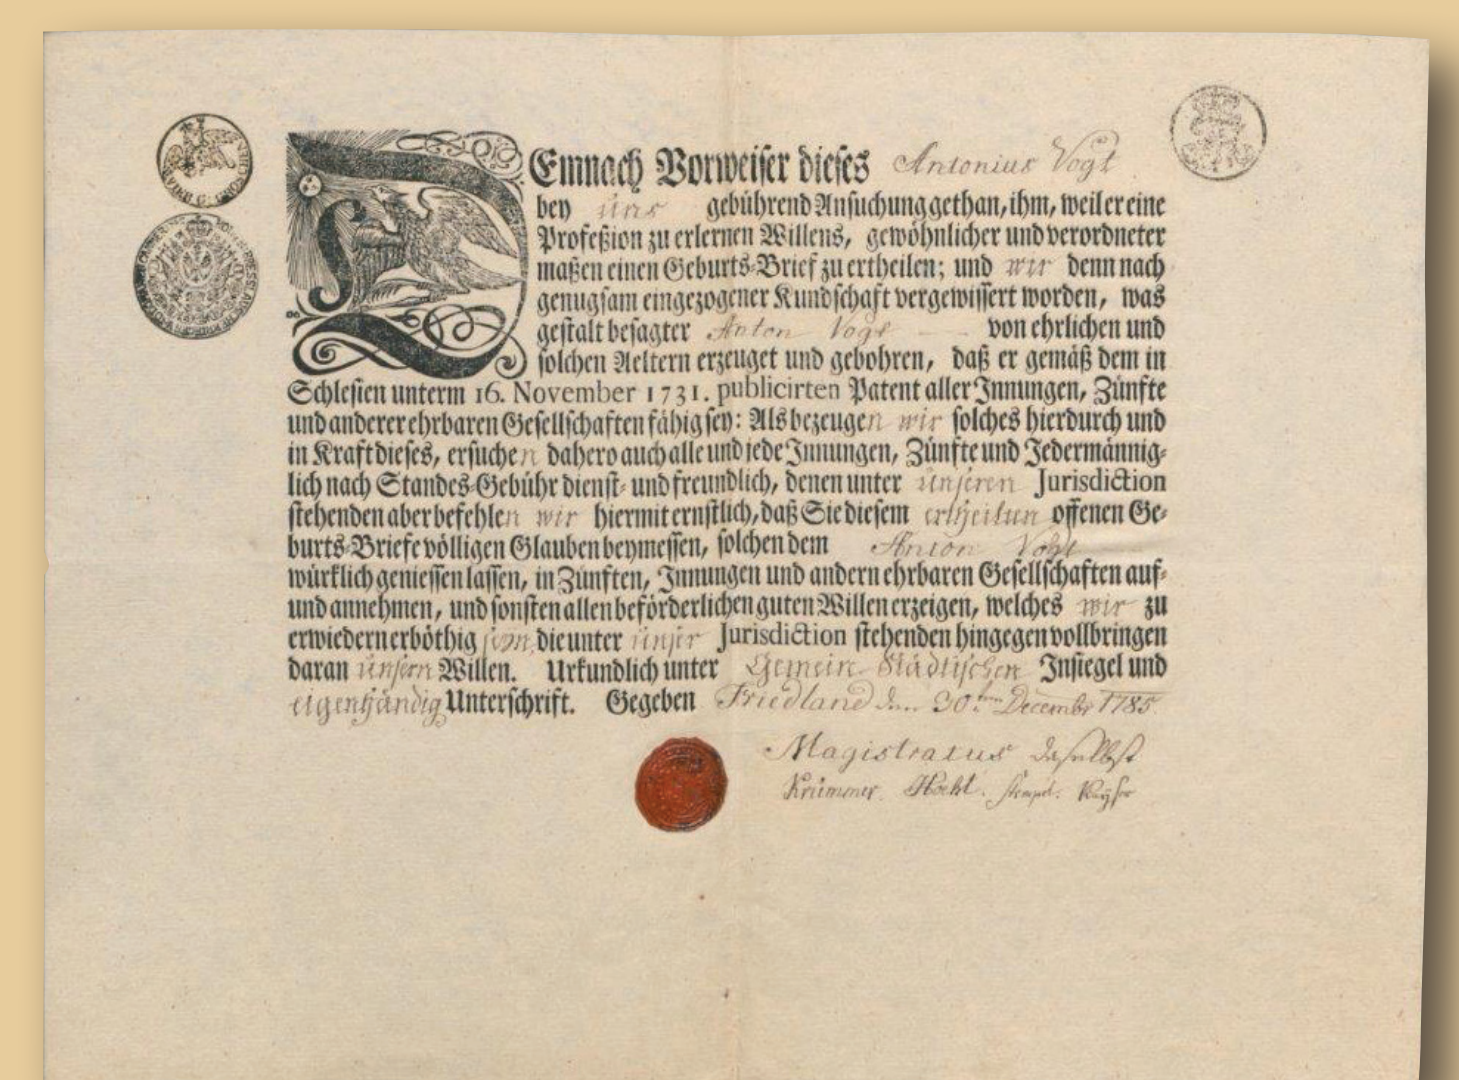 DEmnach Vorweiser dieses Antonius Vogt
bey uns gebührend Ansuchung gethan, ihm, weil er eine
Profeßion zu erlernen Willens, gewöhnlicher und verordneter
maßen einen Geburts-Brief zu ertheilen; und wir denn nach
genugsam eingezogener Kundschaft vergewissert worden, was
gestalt besagter Anton Vogt von ehrlichen und
solchen Aeltern erzeuget und gebohren, daß er gemäß dem in
Schlesien unterm 16. November 1731. publicirten Patent aller Innungen, Zünfte
und anderer ehrbaren Gesellschaften fähig sey: Als bezeugen wir solches hierdurch und
in Kraft dieses, ersuchen dahero auch alle und jede Innungen, Zünfte und Jedermännig-
lich nach Standes-Gebühr dienst- und freundlich, denen unter unseren Jurisdiction
stehenden aber befehlen wir hiermit ernstlich, daß Sie diesem ertheilten offenen Ge-
burts-Briefe völligen Glauben beymessen, solchen dem Anton Vogt
würklich geniessen lassen, in Zünften, Innungen und andern ehrbaren Gesellschaften auf-
und annehmen, und sonsten allen beförderlichen guten Willen erzeigen, welches wir zu
erwiedern erböthig seyn, die unter unser Jurisdiction stehenden hingegen vollbringen
daran unsern Willen. Urkundlich unter Gemein Städtischen Insiegel und
eigenhändig Unterschrift. Gegeben Friedland den 30.ten Decembr 1785
Magistratus daselbst
Krümmer. Kayser